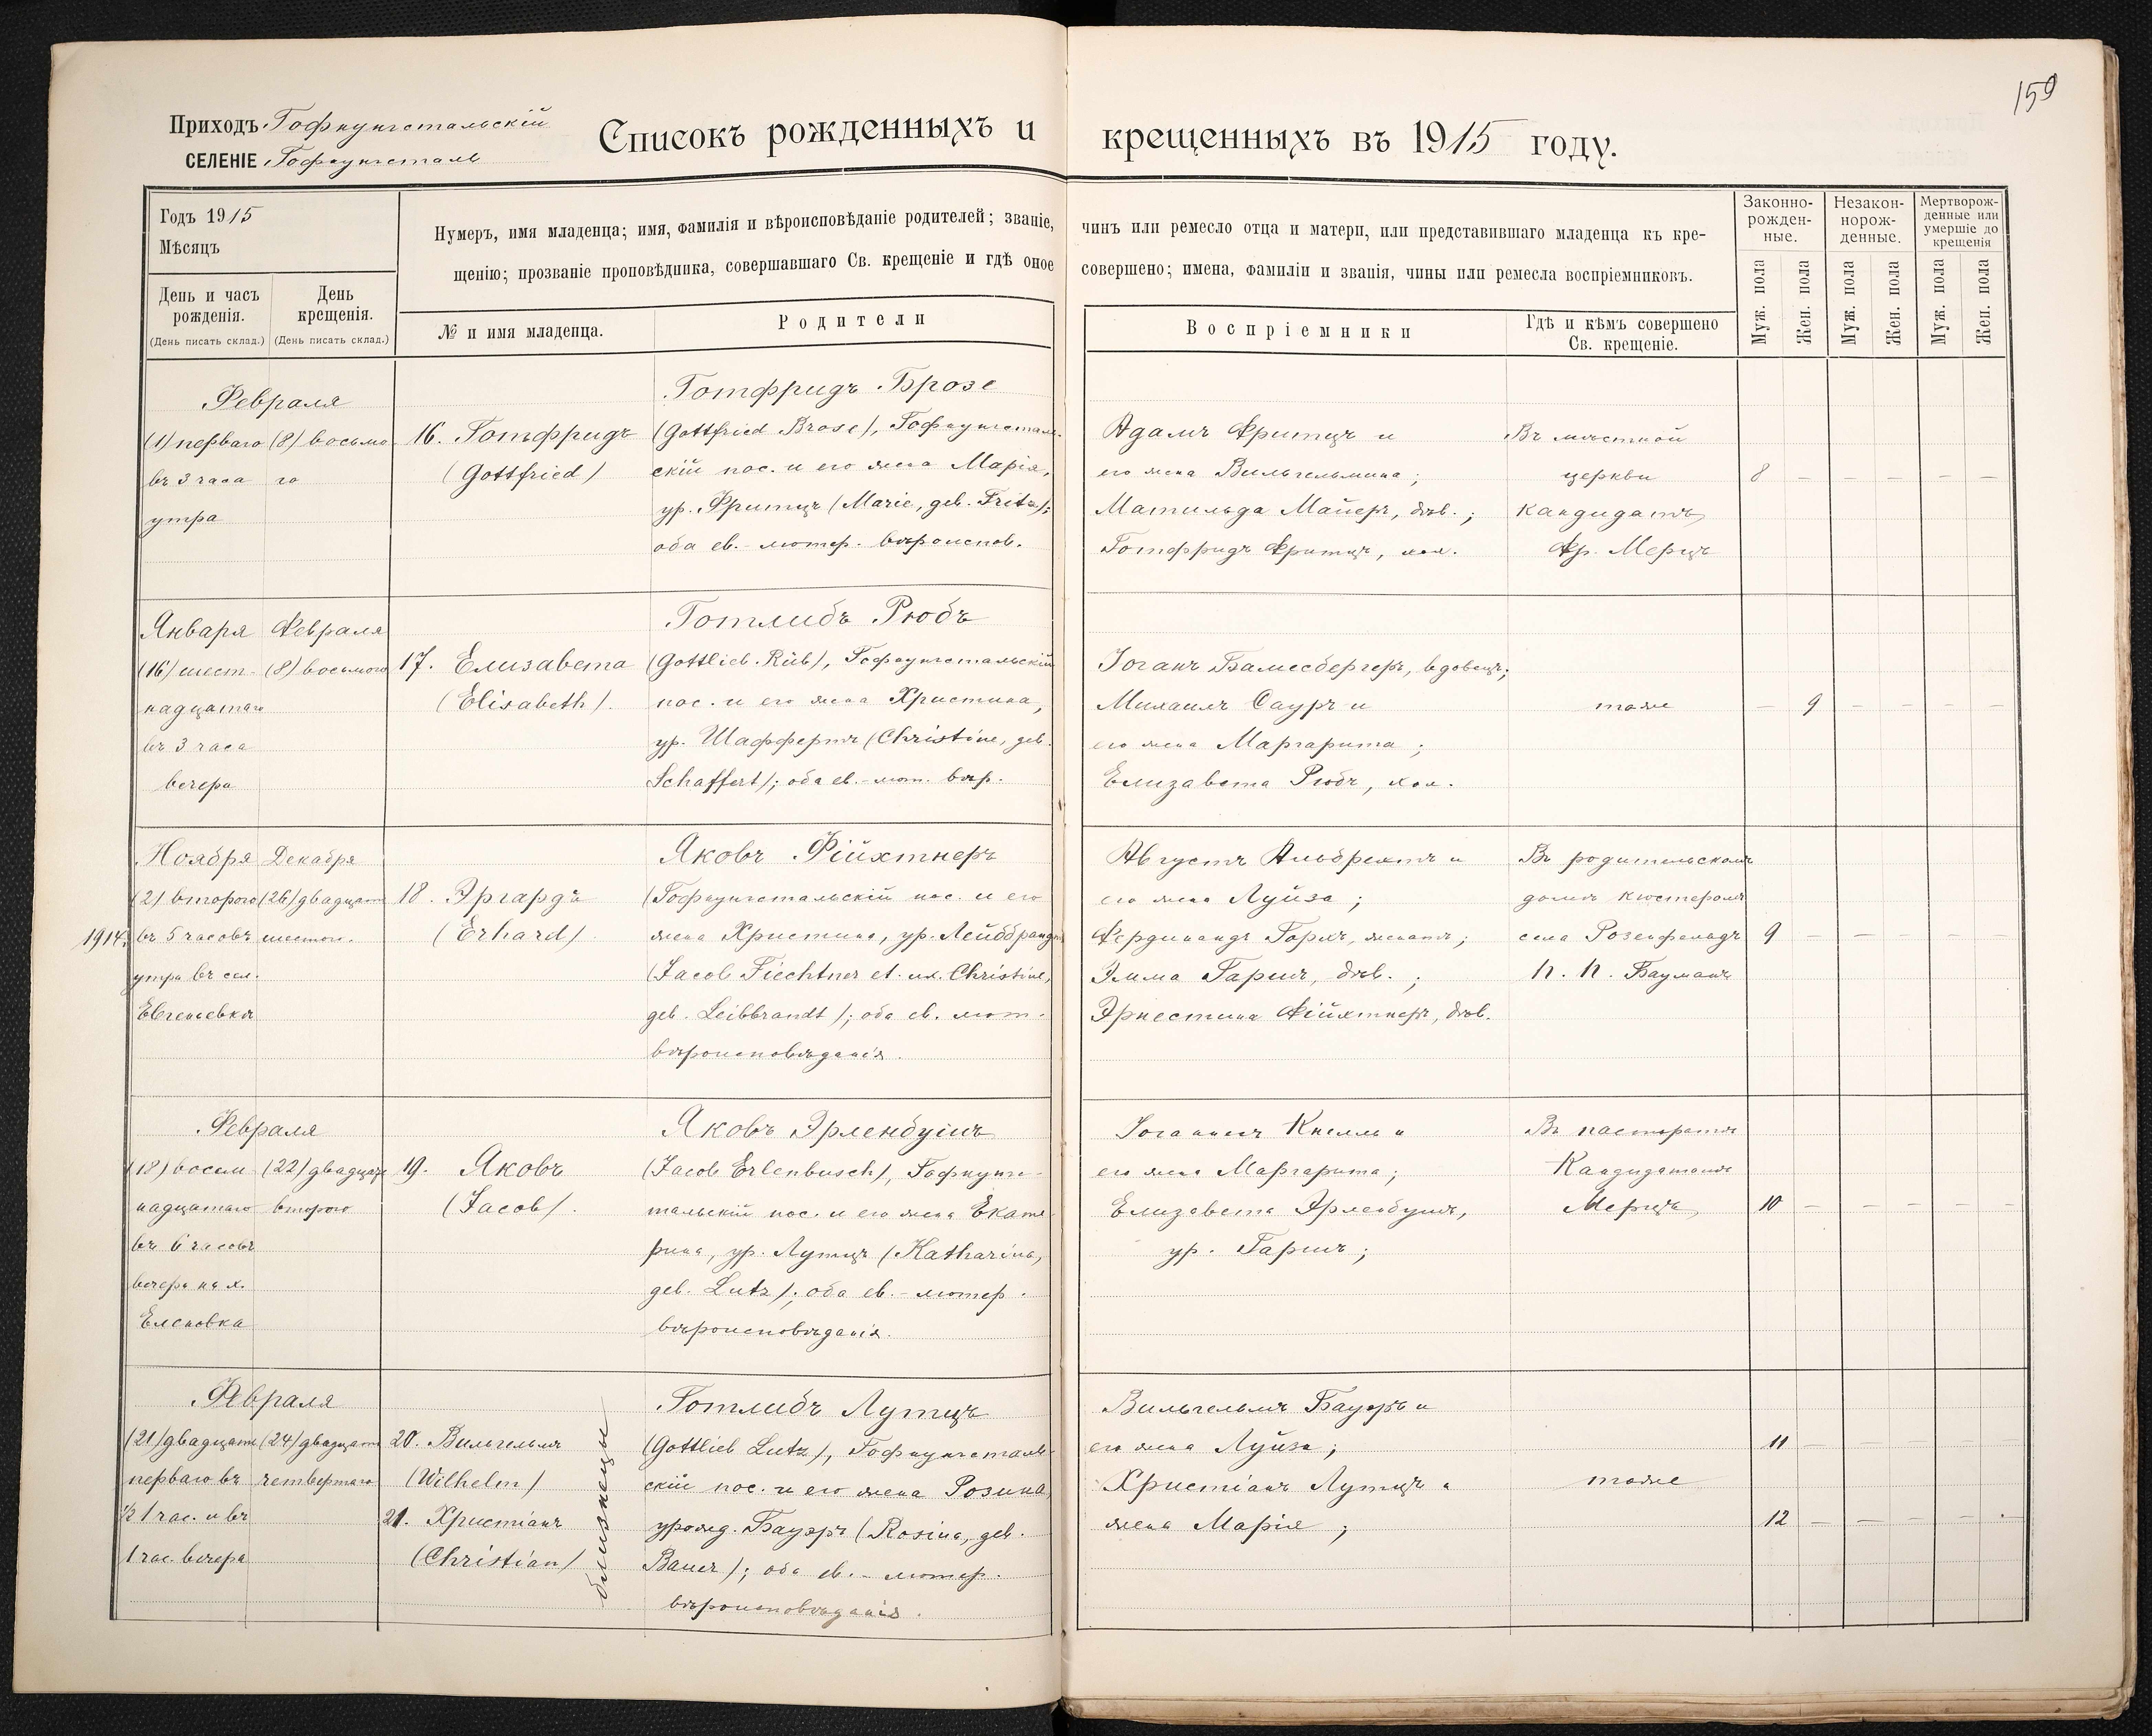 159
Приходъ Гофнунгстальскій
СЕЛЕНІЕ Гофнунгсталь
Списокъ рожденныхъ и крещенныхъ въ 1915 году.
Годъ 1915
Мѣсяцъ
День и часъ рожденія.
(День писать склад.)
День крещенія.
(День писать склад.)
Нумеръ, имя младенца; имя, фамилія и вѣроисповѣданіе родителей; званіе, чинъ или ремесло отца и матери, или представившаго младенца къ кре-
щенію; прозваніе проповѣдника, совершавшаго Св. крещеніе и гдѣ оное совершено; имена, фамиліи и званія, чины или ремесла воспріемниковъ.
№ и имя младенца.
Родители
Воспріемники
Гдѣ и кѣмъ совершено
Св. крещеніе.
Законно-
рожден-
ные.
Незакон-
норож-
денные.
Мертворож-
денные или
умершіе до
крещенія
Муж. пола
Жен. пола
Муж. пола
Жен. пола
Муж. пола
Жен. пола
Февраля
(1) перваго
въ 3 часа
утра
(8) восьмо
го
16. Готфридъ
(Gottfried)
Готфридъ Брозе
(Gottfried Brose), Гофнунгсталь-
скій пос. и его жена Марія,
ур. Фритцъ (Marie, geb. Fritz);
оба ев.-лютер. вѣроиспов.
Адамъ Фритцъ и
его жена Вильгельмина;
Матильда Майеръ, дѣв.;
Готфридъ Фритцъ, хол.
Въ мѣстной
церкви
кандидатъ
Фр. Мерцъ
8 — — — — —
Января
(16) шест-
надцатаго
въ 3 часа
вечера
Февраля
(8) восьмого
17. Елизавета
(Elisabeth).
Готлибъ Рюбъ
(Gottlieb Rüb), Гофнунгстальскій
пос. и его жена Христина,
ур. Шаффертъ (Christine, geb.
Schaffert); оба ев.-лют. вѣр.
Іоганъ Бамесбергеръ, вдовецъ;
Михаилъ Сауръ и
его жена Маргарита;
Елизавета Рюбъ, хол.
тоже
— 9 — — — —
1914:
Ноября
(2) второго
въ 5 часовъ
утра въ сел.
Евгеньевка
Декабря
(26) двадцать
шестого.
18. Эргардъ
(Erhard)
Яковъ Фійхтнеръ
(Гофнунгстальскій пос. и его
жена Христина, ур. Лейббрандтъ
(Jacob Fiechtner et. ux. Christine,
geb. Leibbrandt); оба ев. лют.
вѣроисповѣданія.
Августъ Альбрехтъ и
его жена Луйза;
Фердинандъ Горхъ, женатъ;
Эмма Гаришъ, дѣв.;
Эрнестина Фійхтнеръ, дѣв.
Въ родительскомъ
домѣ кюстеромъ
села Розенфельдъ
К. К. Бауманъ
9 — — — — —
Февраля
(18) восем
надцатаго
въ 6 часовъ
вечера на х.
Еленовка
(22) двадцать
второго
19. Яковъ
(Jacob).
Яковъ Эрленбушъ
(Jacob Erlenbusch), Гофнунгс-
тальскій пос. и его жена Екате-
рина, ур. Лутцъ (Katharina,
geb. Lutz); оба ев.-лютер.
вѣроисповѣданія.
Іоганнесъ Кнелль и
его жена Маргарита;
Елизавета Эрленбушъ,
ур. Гаришъ;
Въ пасторатѣ
Кандидатомъ
Мерцъ
10 — — — — —
Февраля
(21) двадцать
перваго въ
½ 1 час. и въ
1 час. вечера
(24) двадцать
четвертаго
20. Вильгельмъ
(Wilhelm)
21. Христіанъ
(Christian)
близнецы
Готлибъ Лутцъ
(Gottlieb Lutz), Гофнунгсталь-
скій пос. и его жена Розина,
урожд. Бауэръ (Rosina, geb.
Bauer); оба ев.-лютер.
вѣроисповѣданія.
Вильгельмъ Бауэръ и
его жена Луйза;
Христіанъ Лутцъ и
жена Марія;
тоже
11 — — — — —
12 — — — — —